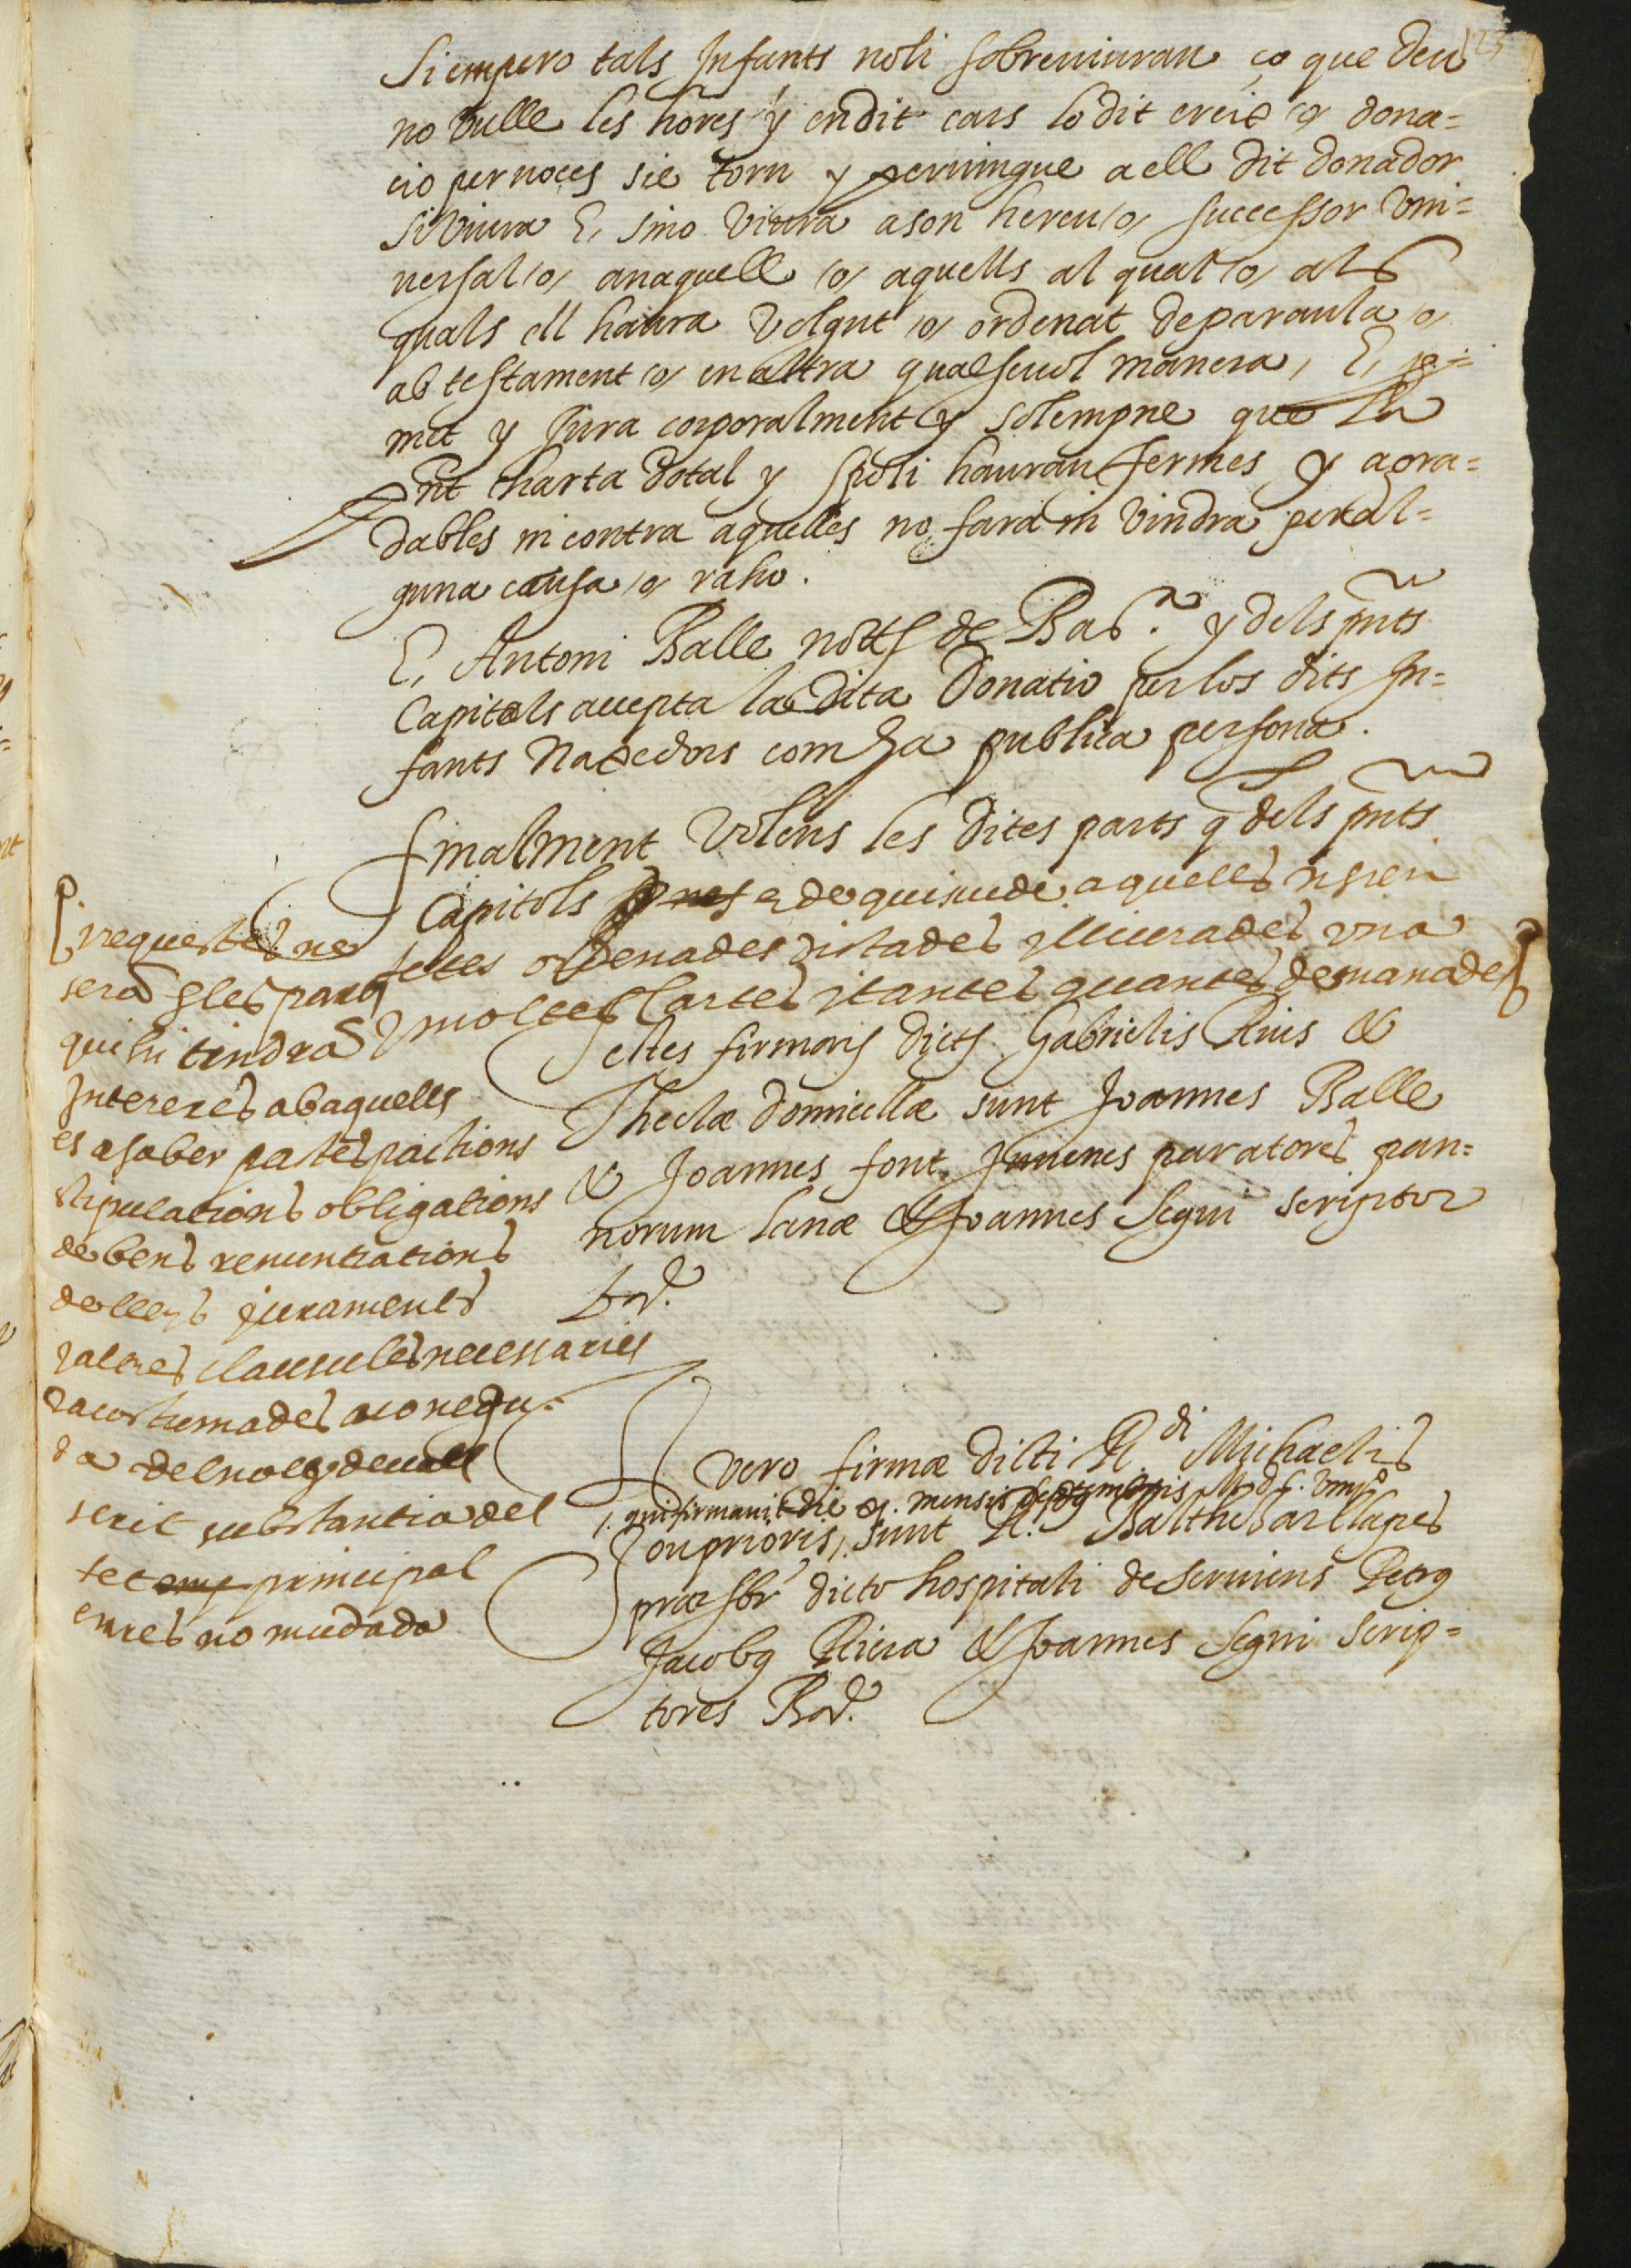 123
Si empero tals Infants noli sobreviuran ço que deu
no vulle les hores y endit cars lo dit creix /o/ dona=
cio per noces sie torn y pervingue a ell dit donador
si viura E, sino viura a son hereu /o/ successor vni=
uersal /o/ anaquell /o/ aquells al qual /o/ als
quals ell haura volgut /o/ ordenat de paraula /o/
ab testament /o/ en altra qualseuol manera, E, p̃=
met y Jura corporalment y solempne que la
pñt charta dotal y spoli hauran fermes y agra=
dables ni contra aquelles no fara ni vindra per al=
guna causa /o/ raho.
E, Antoni Balle nott de Bar.ª y dels pñts
Capitols accepta la dita Donatio per los dits In=
fants Naxedors com ha publica persona.
Finalment volens les dites parts q̃ dels pñts
Capitols e de quiscu de aquells ne sien
fetes ordenades dictades y lliurades vna
y moltes Cartes y tantes quantes demanades
y requestes ne
serã p les parts
qui hi tindrã
Interes es ab aquells
es a saber pactes pactions
stipulacions obligations
de bens renuntiations
de lleys juraments
y altres clausules necessaries
y acostumades a coneguda
del not devall
scrit substantia del
fet principal
en res no mudada
Testes firmarũ dictę Gabrielis Rius &
Theclæ domicellæ sunt Joannes Balle
& Joannes font Juuenes paratores pan=
norum lanæ & Joannes Segui scriptor
bar.
vero firmæ dicti R.di Michaelis
/. qui firmauit die mensis septembris M. d. L.
Conprioris, sunt R. Balthesar Llapes
præsbr dicto hospitali deseruiens Petrꝰ
Jacobꝰ Riera & Joannes Segui scrip=
tores Bar.